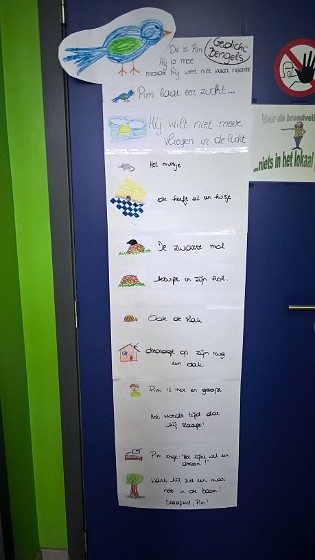 Dit is Pim
Gedicht
Bengels
Hij is moe
maar hij weet niet waar naartoe
Pim laat een zucht...
Hij wilt niet meer
vliegen in de lucht
Het muisje
die heeft al een huisje
De zwarte mol
kruipt in zijn hol.
Ook de slak
draagt op zijn rug
een dak
Pim is moe en gaapt
Het wordt tijd dat
hij slaapt!
Pim zegt: "Het
Want hij zit zo mooi
in de boom!
Slaapwel, Pim!
Voor de brandveil
...niets in het lokaal